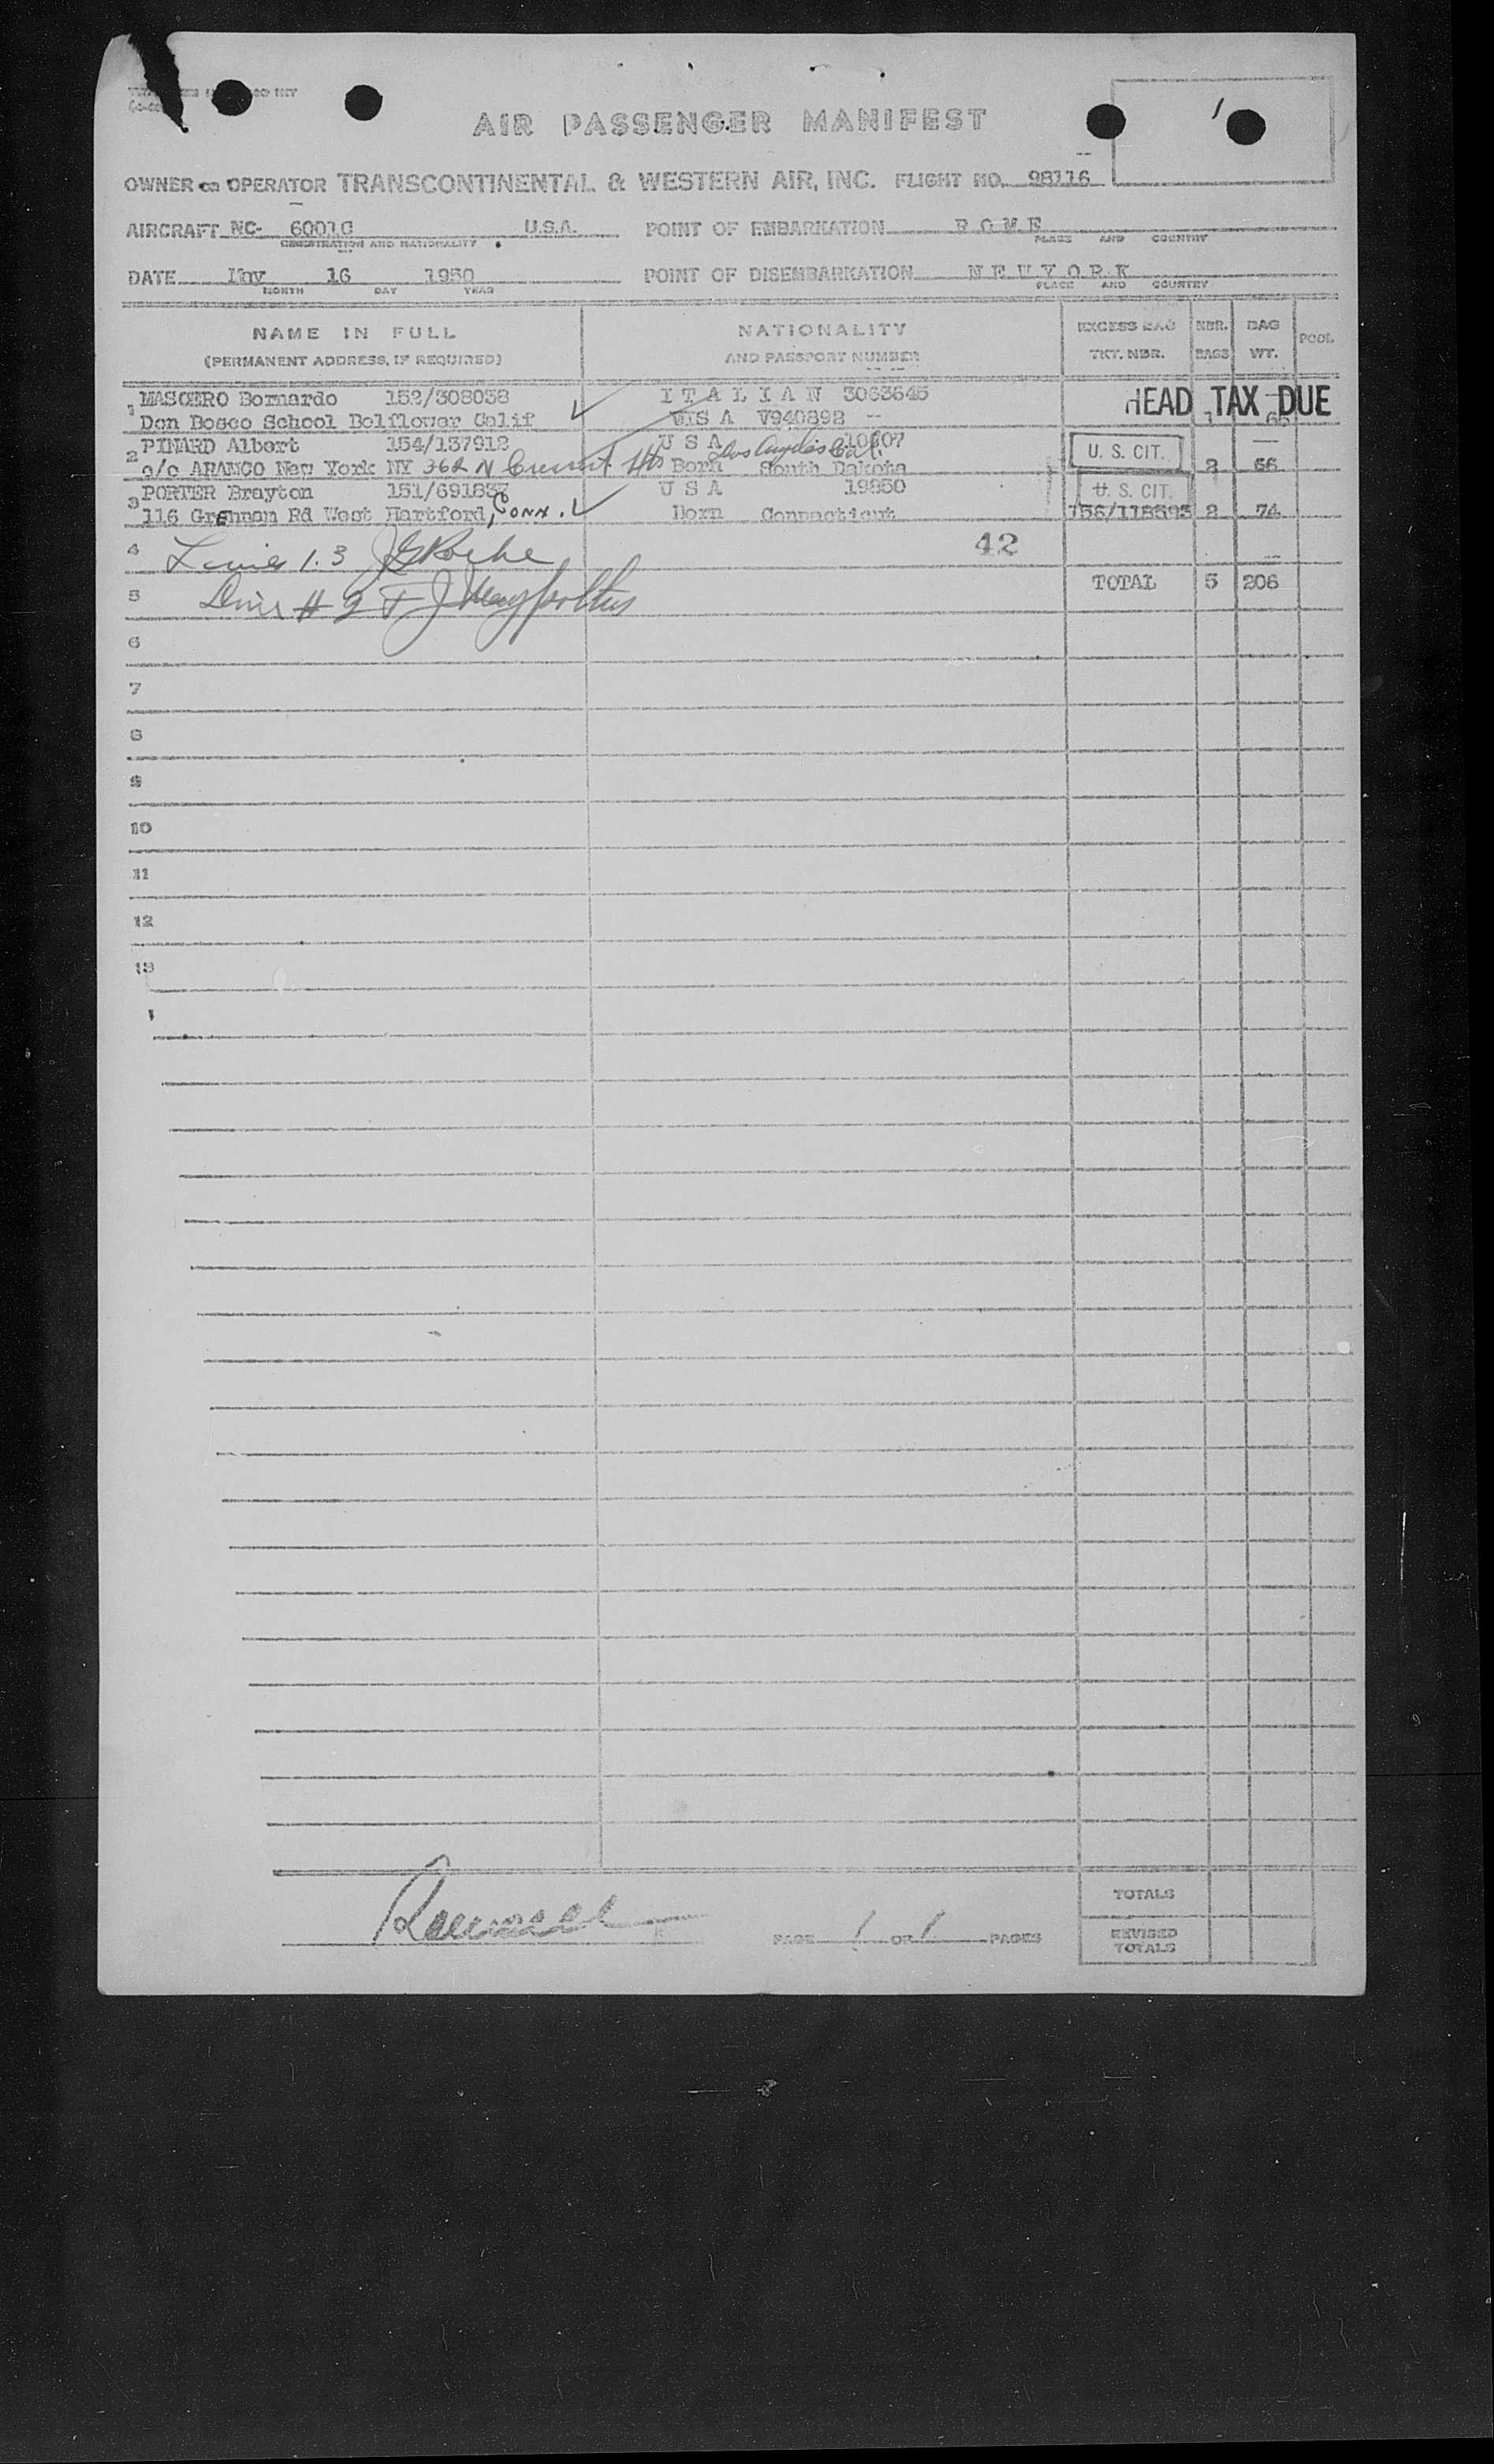 AIR PASSENGER MANIFEST
OWNER OR OPERATOR TRANSCONTINENTAL & WESTERN AIR, INC. FLIGHT NO. 98116
AIRCRAFT NC- U.S.A. POINT OF EMBARKATION R O M E
REGISTRATION AND NATIONALITY PLACE AND COUNTRY
DATE May 16 1950 POINT OF DISEMBARKATION N E W Y O R K
MONTH DAY YEAR PLACE AND COUNTRY
NAME IN FULL NATIONALITY EXCESS BAG NBR. BAG POOL
(PERMANENT ADDRESS, IF REQUIRED) AND PASSPORT NUMBER TKT. NBR. BAGS WT.
1 MASOERO Bernardo 152/308038 I T A L I A N 3063645 HEAD TAX DUE
Don Bosco School Belflower Calif VISA V940892 -- 1 66
2 PINARD Albert 154/137912 U S A Los Angeles Cal. U. S. CIT.
c/o ARAMCO New York NY 362 N Crescent Hts Born South Dakota 2 66
3 PORTER Brayton U S A 19850 U. S. CIT.
116 Grennan Rd West Hartford, Conn. Born Connecticut 156/118593 2 74
4 Lines 1.3 42
5 Line # 2 TOTAL 5 206
6
7
8
9
10
11
12
13
TOTALS
PAGE 1 OF 1 PAGES REVISED
TOTALS